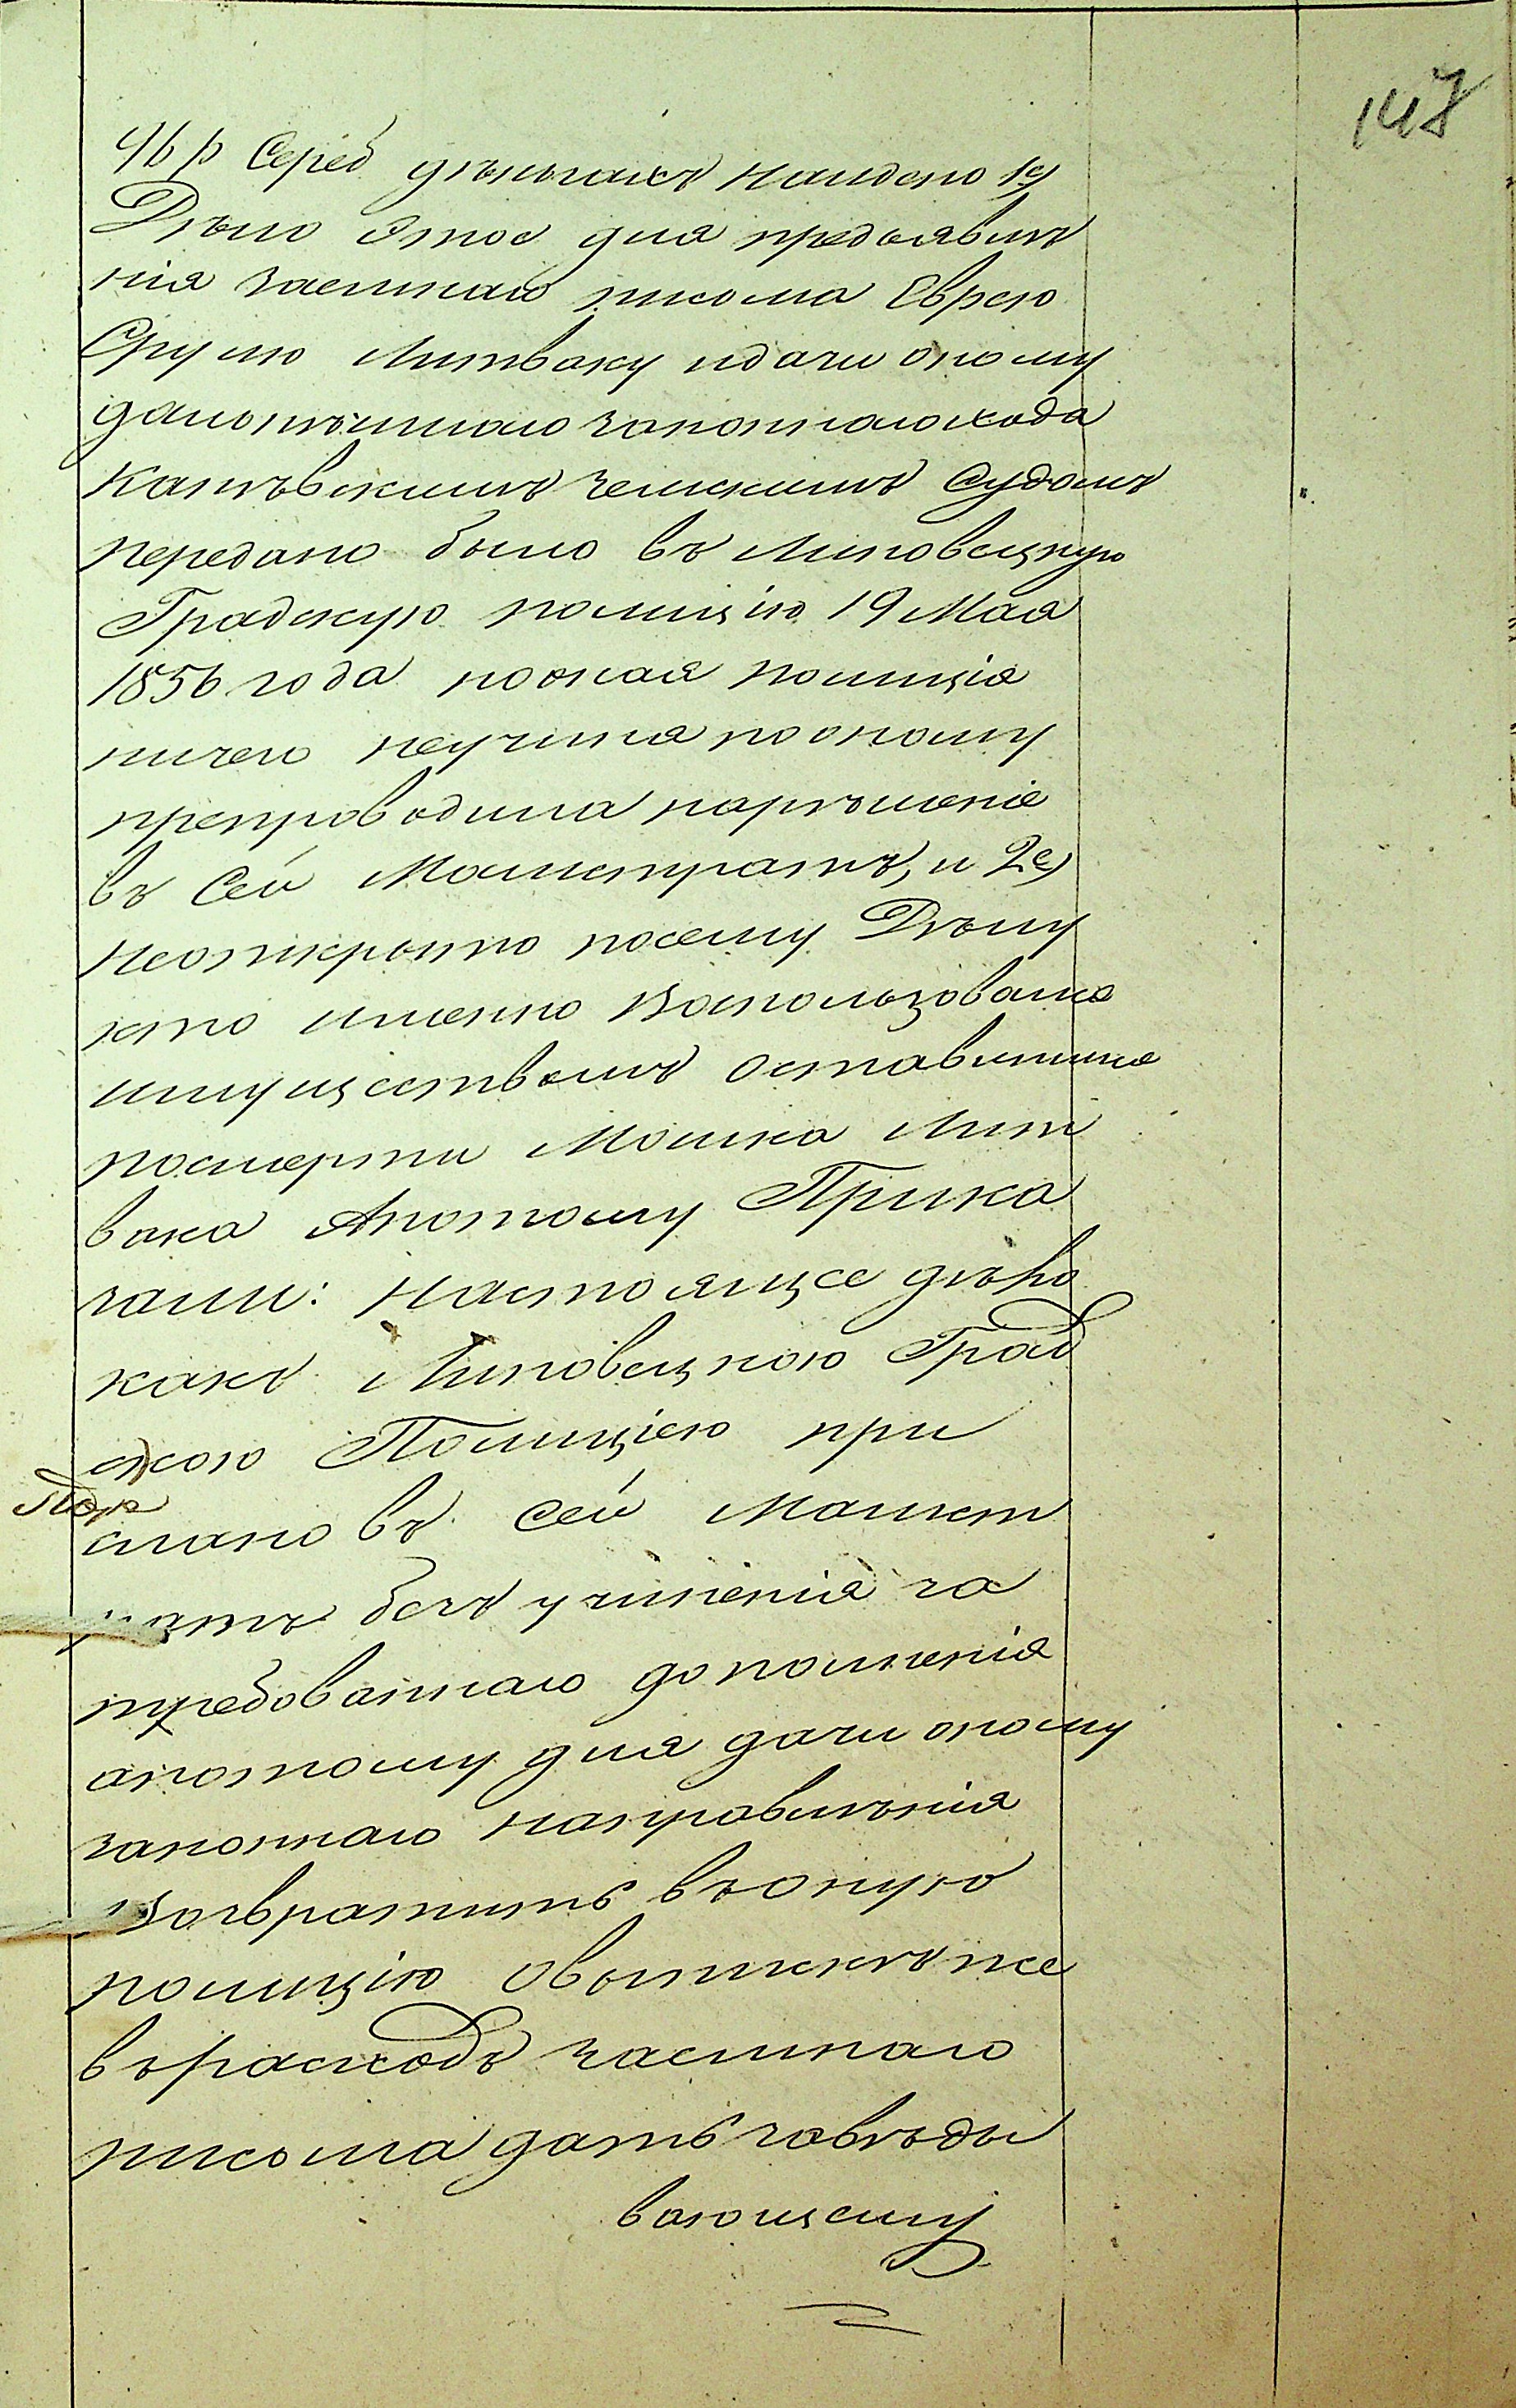 147
46 р Серед деньгахъ найдено 1е)
Дѣло этое для предъявлѣ
нія заемнаго письма Еврею
Срулю Литваку идачи оному
дальнѣйшаго законнаго хода
Каневскимъ земскимъ Судомъ
передано было въ Липовецкую
Градскую полицію 19 Мая
1856 года но оная полиція
ничего неучиня по оному
препроводила нарѣшеніе
въ Сей Магистратъ, и 2е)
неоткрыто посему Дѣлу
кто именно воспользовался
имуществомъ оставшимся
посмерти Мошка Лит
вака Апотому Прика
зали: настоящее дѣло
какъ Липовецкою Град
скою Полиціею при
слано въ Сей Магист
ратъ безъ учиненія за
требованнаго дополненія
апотому для дачи оному
законнаго направленія
возвратить въ оную
полицію Овыпискѣ же
върасходъ заемнаго
письма дать завѣды
вающему